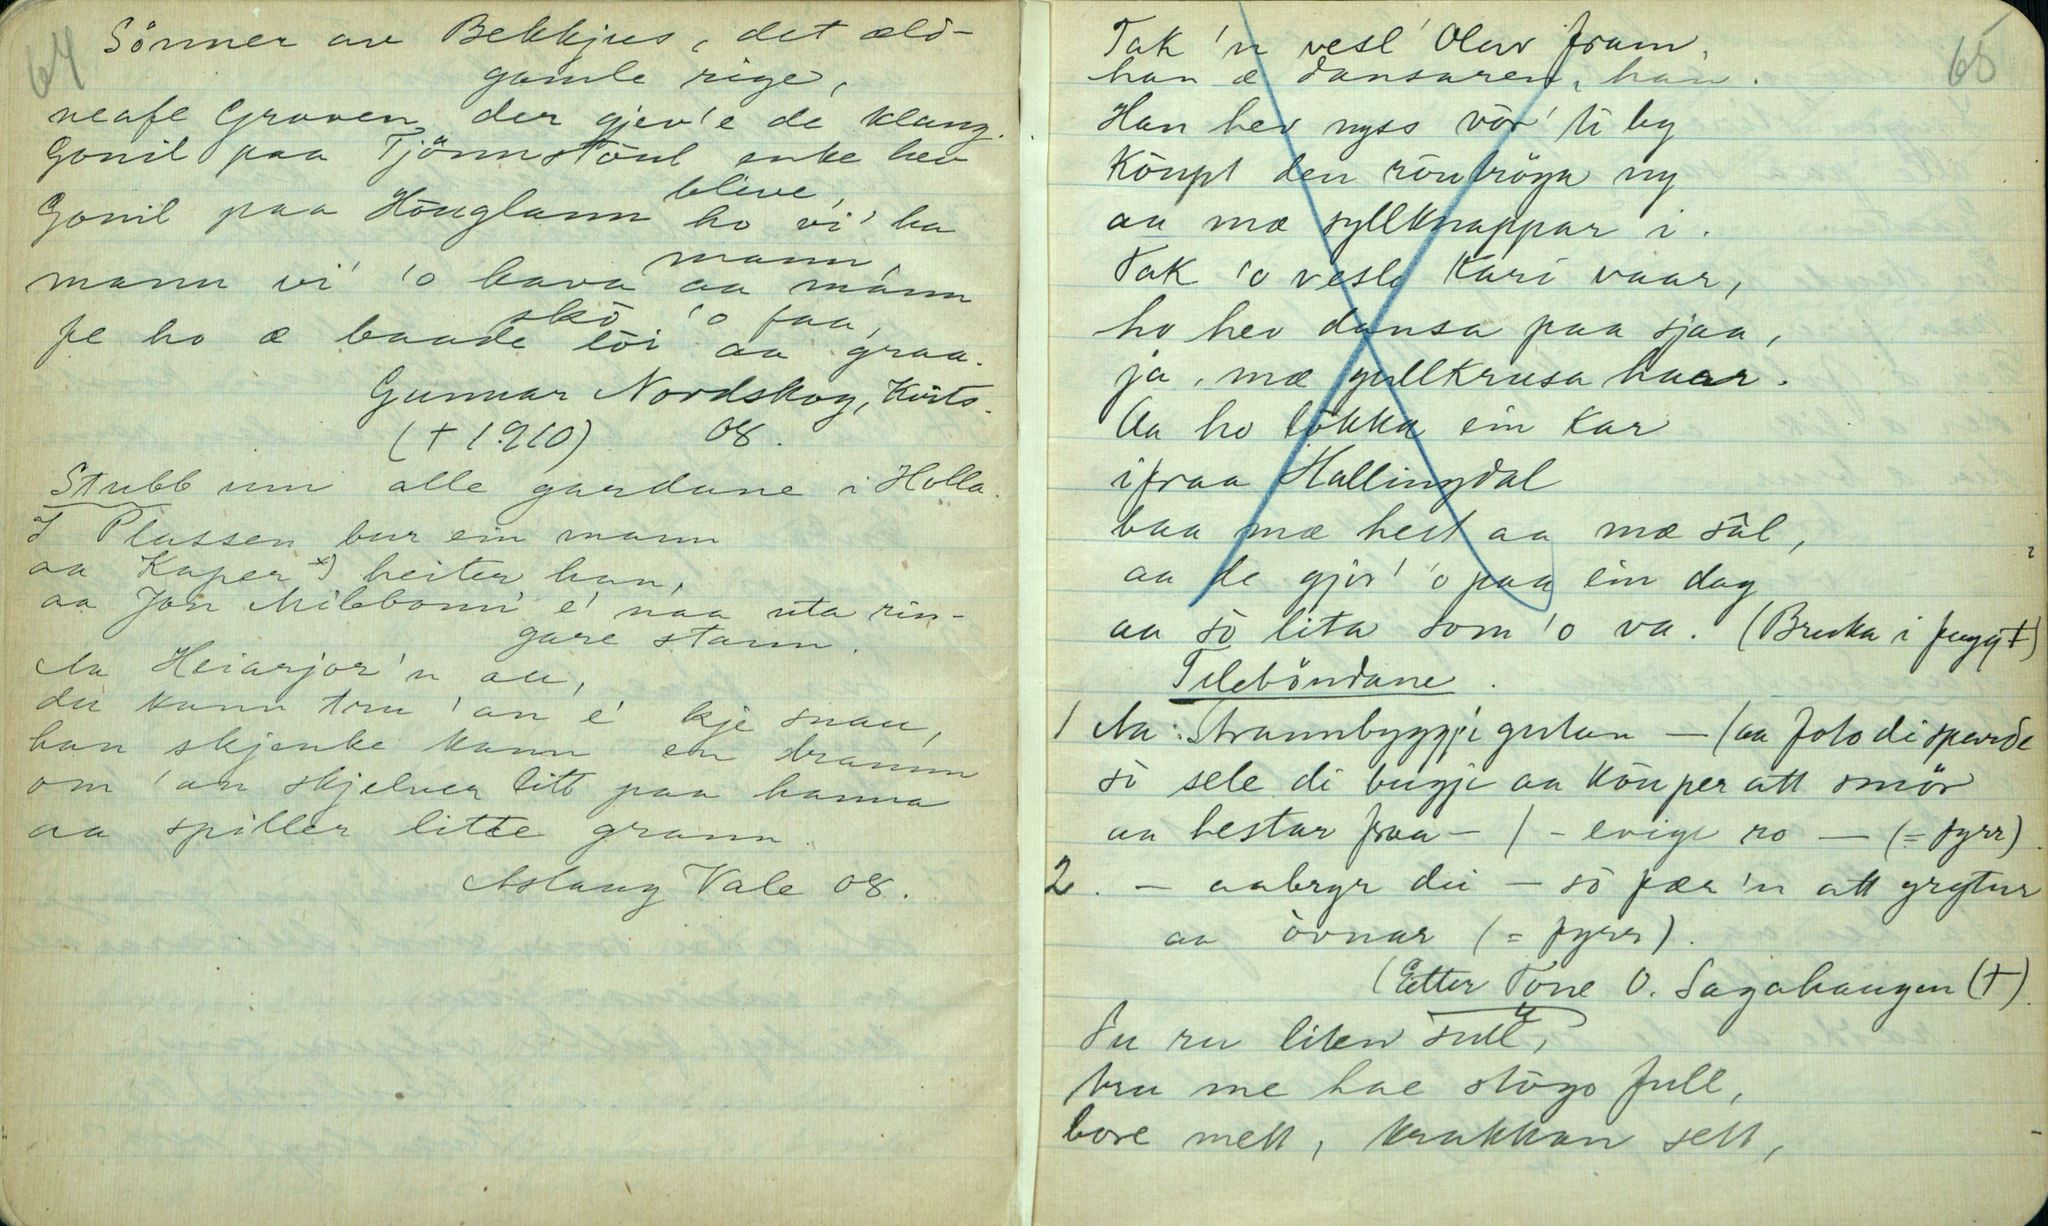 64
Sönner av Bekkjus, det æld-
gamle rige,
neafe Graven der gjev'e de klang.
Gonil paa Tjönnstöul enke hev
blive,
Gonil paa Höuglann ho vi' ha
mann,
mann vi' 'o hava aa mann
skö 'o faa,
fe ho æ baade löi aa graa.
Gunnar Nordskog, Kvits.
(† 1910) 08.
Stubb um alle gardane i Holla.
I Plassen bur ein mann
aa Kaper x) heiter han,
aa Jon Milbonn e' naa uta rin-
gare stann.
Aa Heiarjor'n au,
du kann tru 'an e' kje snau,
han skjenke kann en bramm
om 'an skjelver litt paa hanna
aa spiller litte grann.
Aslaug Vale 08.
65
Tak 'n vesl' Olav fram,
han æ dansaren, han.
Han hev nyss vör' ti by
Köupt den röubröga ny
aa mæ syllknappar i.
Tak 'o vesle Kari vaar,
ho hev dansa paa sjaa,
ja, mæ gullkrusa haar.
Aa ho lökka ein kar
ifraa Hallingdal
baa mæ hest aa mæ sål,
aa de gjor' 'o paa ein dag
aa so lita som 'o va. (Bruka i
Teleböndane.
1 Aa: Strannbyggji gutan — (aa foto di spurde
so sele di bugji aa köuper att smör
aa hestar fraa — / — evige ro — (= fyrr)
2. — aabryr di — so fær 'n att grytur
aa övnar (= fyrr).
(Etter Tone O. Sagahaugen (†)
Su ru liten sull,
bru me hae stögo full,
bore mett, krakkan sett,